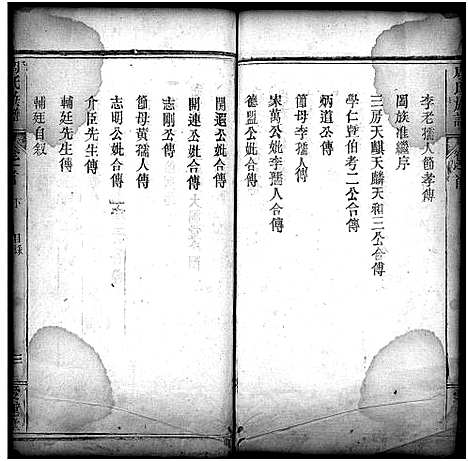 李老孺人節孝傳
闔族准繼序
三房天麒天麟天和三公合傳
學仁暨伯考二公合傳
炳道公傳
節母李孺人傳
宋萬公妣李孺人合傳
德盟公妣合傳
開運公妣合傳
開連公妣合傳
志剛公傳
節母黃孺人傳
志明公妣合傳
介臣先生傳
輔廷先生傳
輔廷自叙
目錄
三